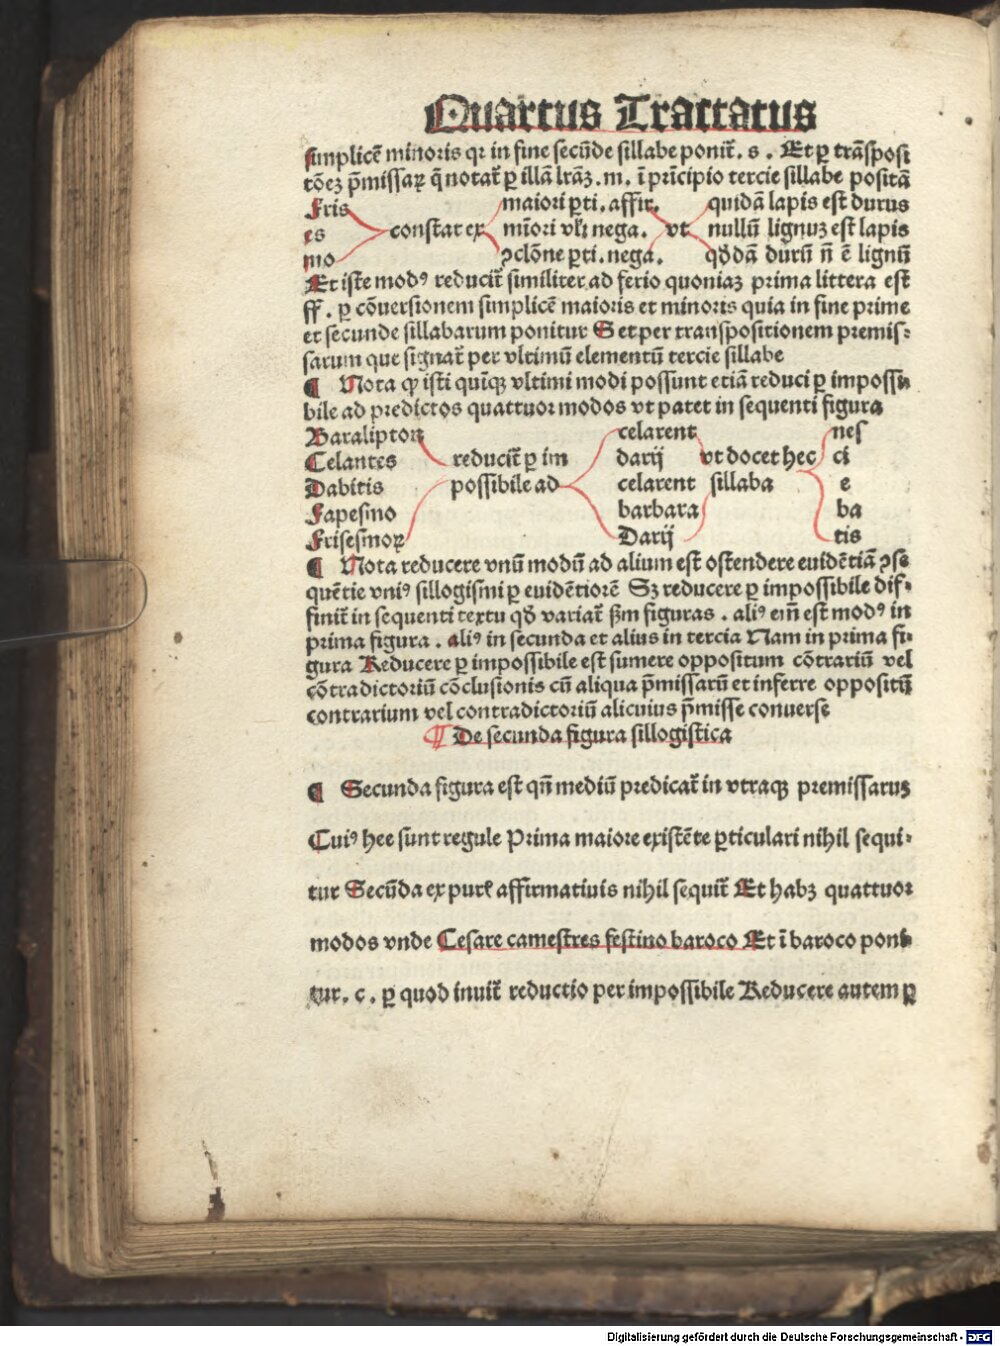 Quartus Tractatus
simplicē minoris qꝛ in fine secūde sillabe ponit̄. s. Et ꝑ trāsposi
tōeꝫ p̄missaꝝ q̄ notat̄ ꝑ illā lr̄aꝫ. m. ī prīcipio tercie sillabe positā
Fris
es
mo
constat ex
maiori ꝑti. affir.
mīori vl̄i nega.
ꝯclōne ꝑti. nega.
vt
quidā lapis est durus
nullū lignuꝫ est lapis
qd̄dā durū n̄ ē lignū
Et iste modꝰ reducit̄ similiter ad ferio quoniaꝫ prima littera est
ff. ꝑ cōuersionem simplicē maioris et minoris quia in fine prime
et secunde sillabarum ponitur S et per transpositionem premis-
sarum que signat̄ per vltimū elementū tercie sillabe
¶ Nota ꝙ isti quīqꝫ vltimi modi possunt etiā reduci ꝑ impossi-
bile ad predictos quattuor modos vt patet in sequenti figura
Baralipton
Celantes
Dabitis
Fapesmo
Frisesmoꝝ
reducit̄ ꝑ im
possibile ad
celarent
darij
celarent
barbara
Darij
vt docet hec
sillaba
nes
ci
e
ba
tis
¶ Nota reducere vnū modū ad alium est ostendere euidētiā ꝯse
quētie vniꝰ sillogismi ꝑ euidētiorē Sꝫ reducere ꝑ impossibile dif-
finit̄ in sequenti textu qd̄ variat̄ ẜm figuras. aliꝰ em̄ est modꝰ in
prima figura. aliꝰ in secunda et alius in tercia Nam in prima fi-
gura Reducere ꝑ impossibile est sumere oppositum cōtrariū vel
cōtradictoriū cōclusionis cū aliqua p̄missarū et inferre oppositū
contrarium vel contradictoriū alicuius p̄misse conuerse
¶ De secunda figura sillogistica
¶ Secunda figura est qn̄ mediū predicat̄ in vtraqꝫ premissaruꝫ
Cuiꝰ hee sunt regule Prima maiore existēte ꝑticulari nihil sequi-
tur Secūda ex purꝭ affirmatiuis nihil sequit̄ Et habꝫ quattuor
modos vnde Cesare camestres festino baroco Et ī baroco poni-
tur. c. ꝑ quod inuit̄ reductio per impossibile Reducere autem ꝑ
Digitalisierung gefördert durch die Deutsche Forschungsgemeinschaft - DFG